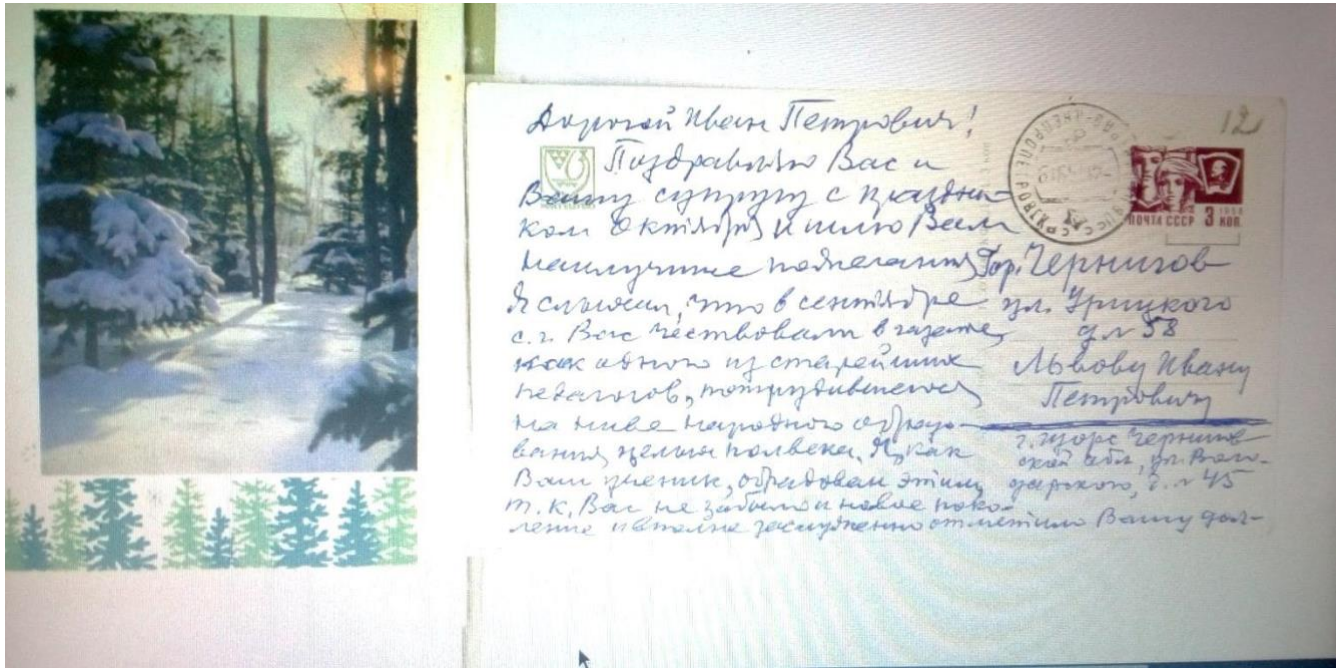 Дорогой Иван Петрович!
Поздравляю Вас и
Вашу супругу с праздни-
ком Октября и шлю Вам
наилучшие пожелания
Я слышал, что в сентябре
с.г. Вас чествовали в газете,
как одного из старейших
педагогов, потрудившегося
на ниве народного образо-
вания целых полвека. Я, как
Ваш ученик, обрадован этим,
т.к. Вас не забыло и новое поко-
ление и вполне заслуженно отметило Вашу дол-
12
ПОЧТА СССР 3 КОП.
Гор. Чернигов
ул. Урицкого
д. № 58
Львову Ивану
Петровичу
г. Щорс Чернигов
ской обл., ул. Воло-
дарского, д. № 45